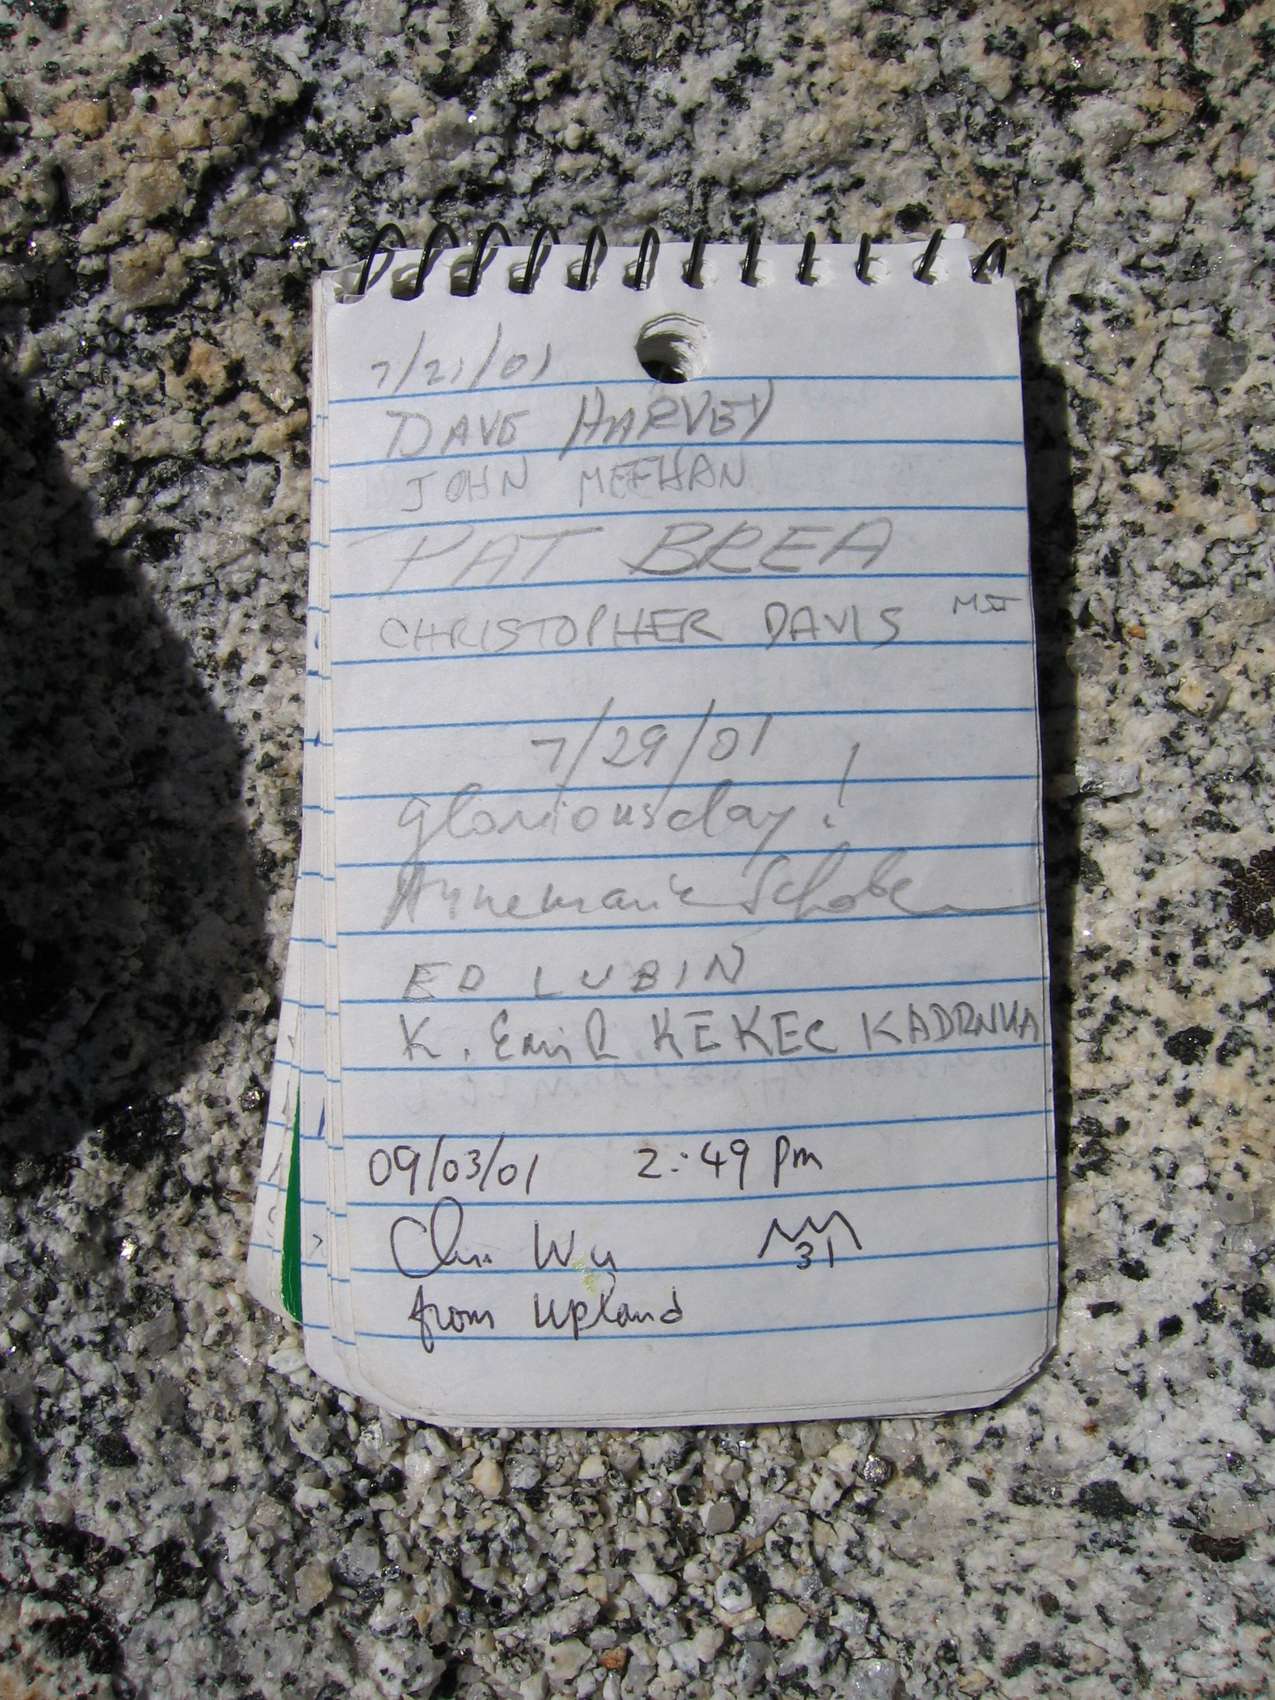 7/21/01
DAVE HARVEY
JOHN MEEHAN
PAT BREA
CHRISTOPHER DAVIS
7/29/01
glorious day!
Annemarie
ED LUBIN
K. Emil KEKEC KADRNKA
09/03/01 2:49 pm
Wu 31
from Upland